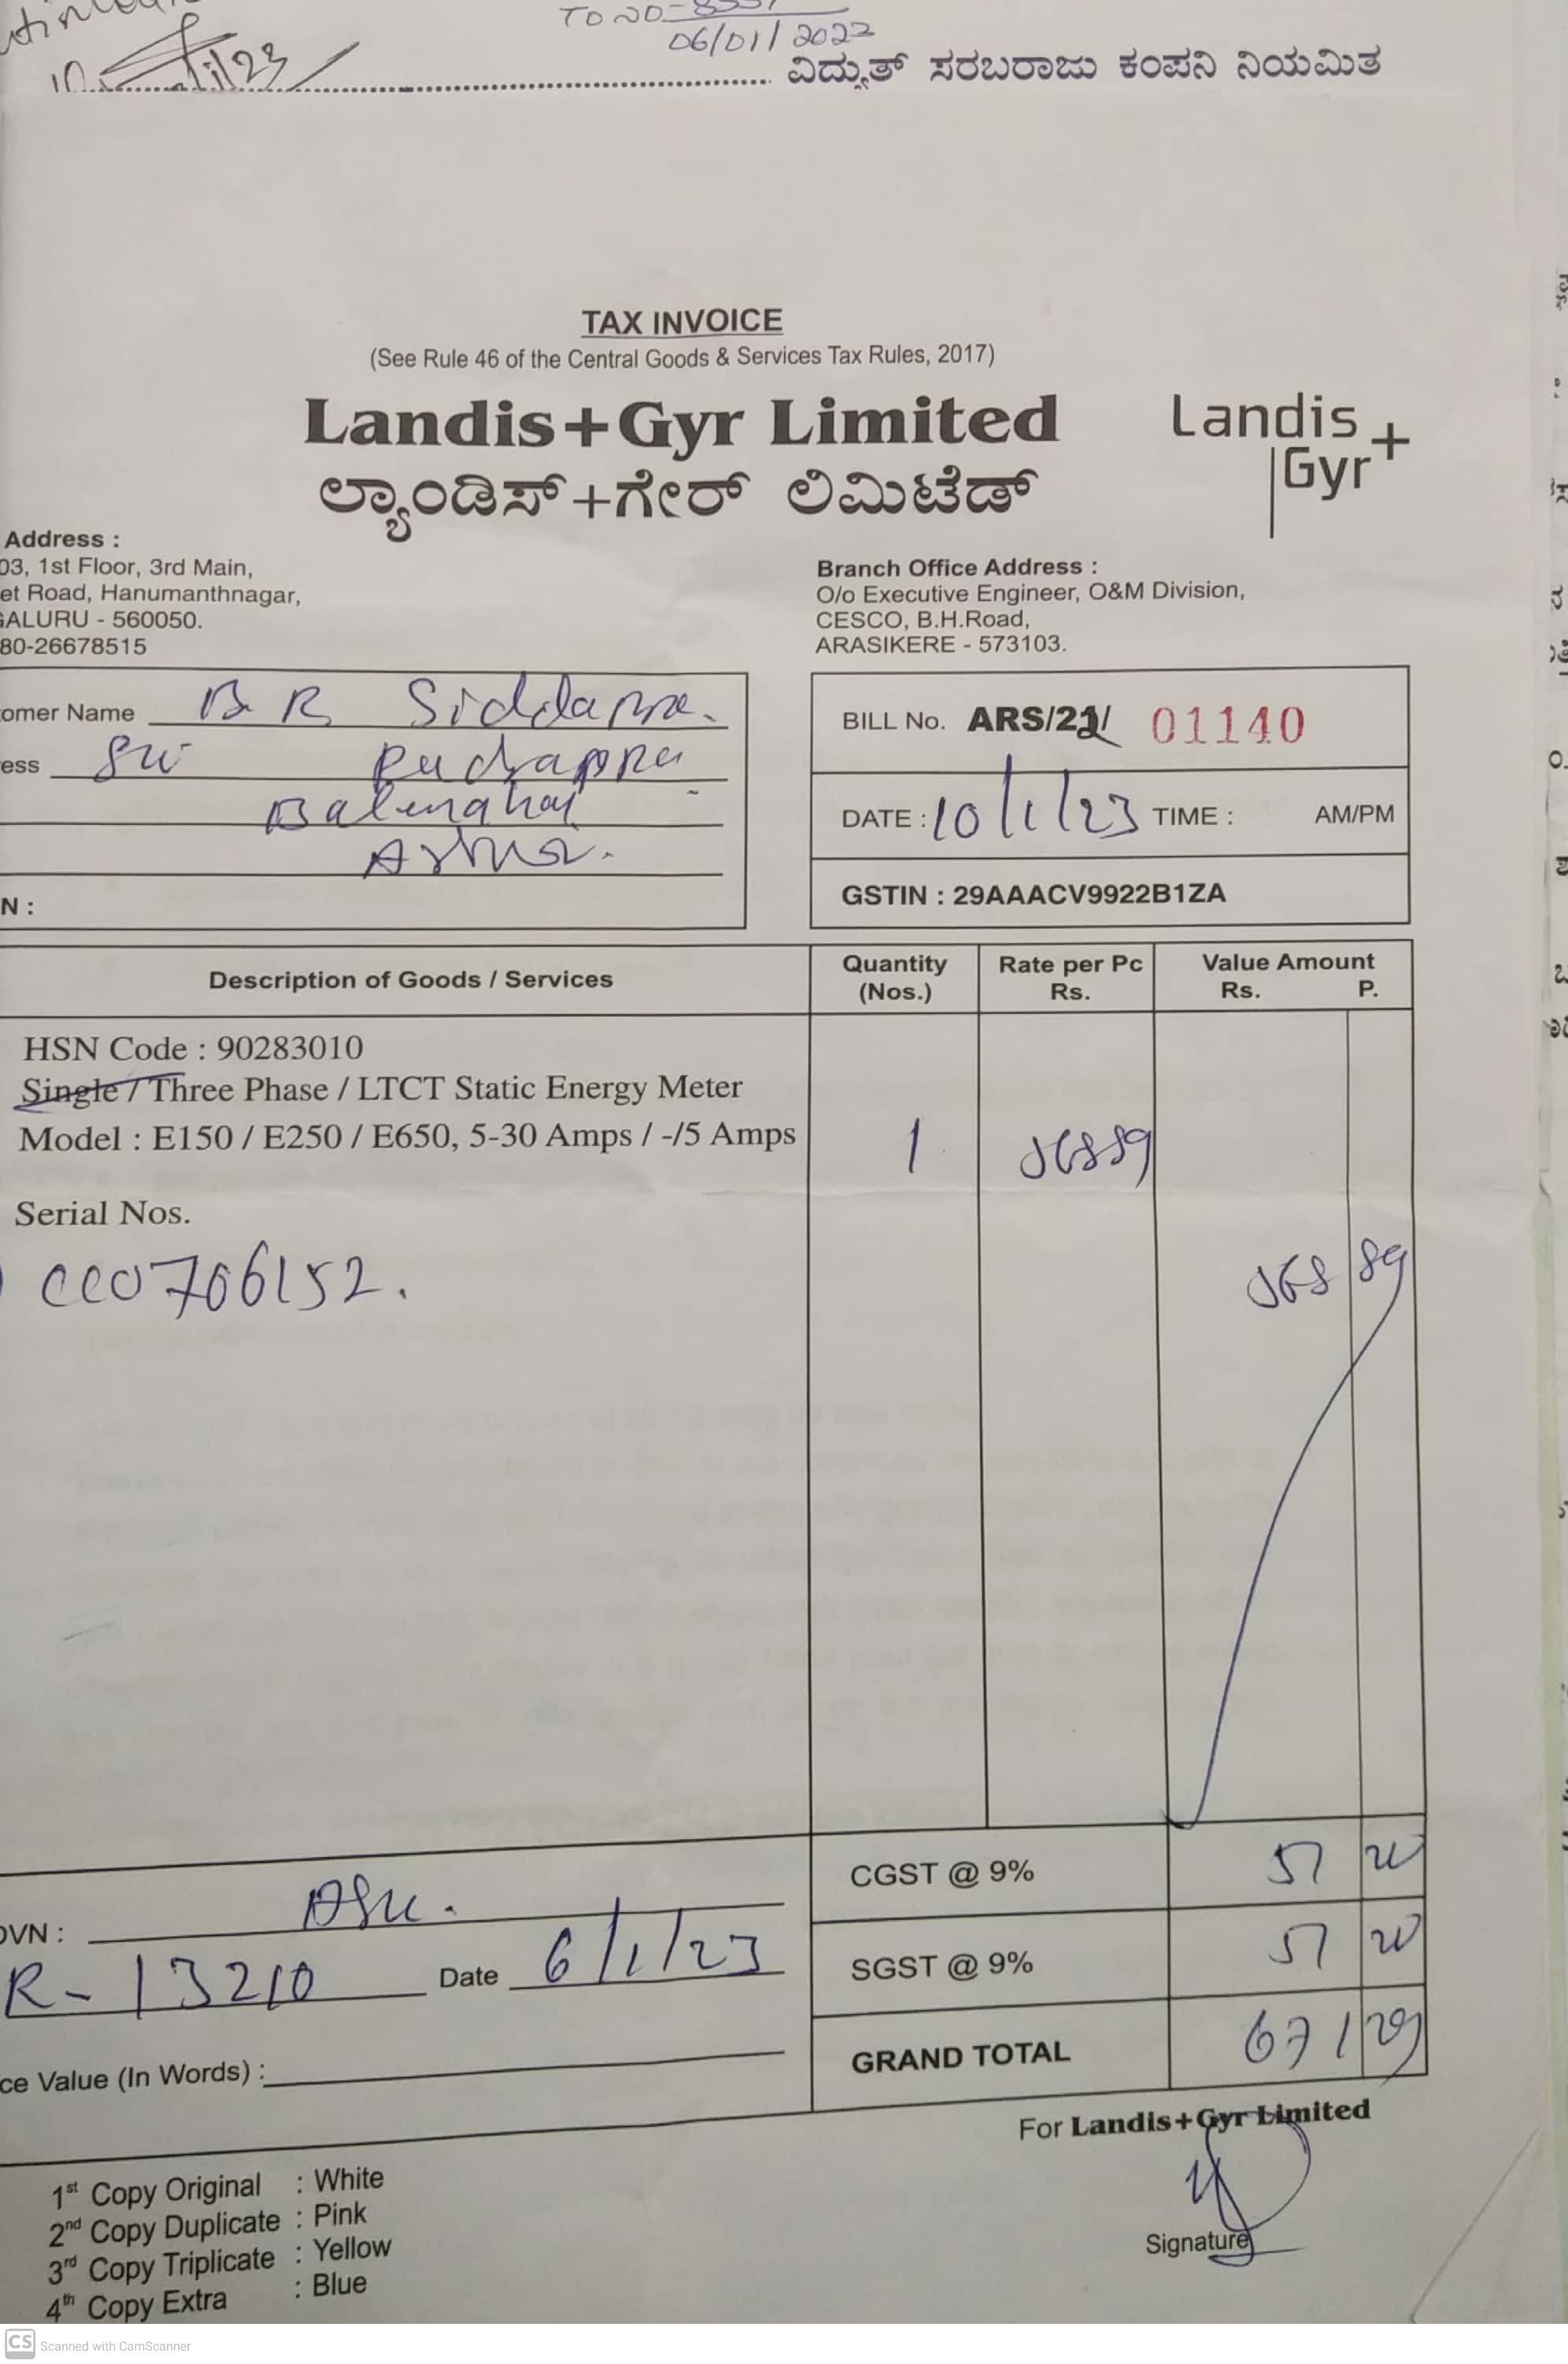 TO NO-
06/01/2022
ವಿದ್ಯುತ್ ಸರಬರಾಜು ಕಂಪನಿ ನಿಯಮಿತ
TAX INVOICE
(See Rule 46 of the Central Goods & Services Tax Rules, 2017)
Landis+Gyr Limited
Landis+
Gyr
ಲ್ಯಾಂಡಿಸ್+ಗೇರ್ ಲಿಮಿಟೆಡ್
Address :
03, 1st Floor, 3rd Main,
et Road, Hanumanthnagar,
GALURU - 560050.
80-26678515
Branch Office Address :
O/o Executive Engineer, O&M Division,
CESCO, B.H.Road,
ARASIKERE - 573103.
omer Name B R Siddappa.
ess Rudrappa
N :
BILL No. ARS/22/ 01140
DATE : 10/1/23 TIME : AM/PM
GSTIN : 29AAACV9922B1ZA
Description of Goods / Services
Quantity (Nos.)
Rate per Pc Rs.
Value Amount Rs. P.
HSN Code : 90283010
Single / Three Phase / LTCT Static Energy Meter
Model : E150 / E250 / E650, 5-30 Amps / -/5 Amps
1
56889
Serial Nos.
568 89
CC0706152.
CGST @ 9% 51 20
SGST @ 9% 51 20
GRAND TOTAL 671 29
OVN :
R-13210 Date 6/1/23
ce Value (In Words) :
For Landis+Gyr Limited
Signature
1st Copy Original : White
2nd Copy Duplicate : Pink
3rd Copy Triplicate : Yellow
4th Copy Extra : Blue
CS Scanned with CamScanner